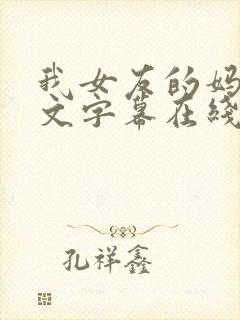 我女友的妈
文字幕在线
孔祥鑫